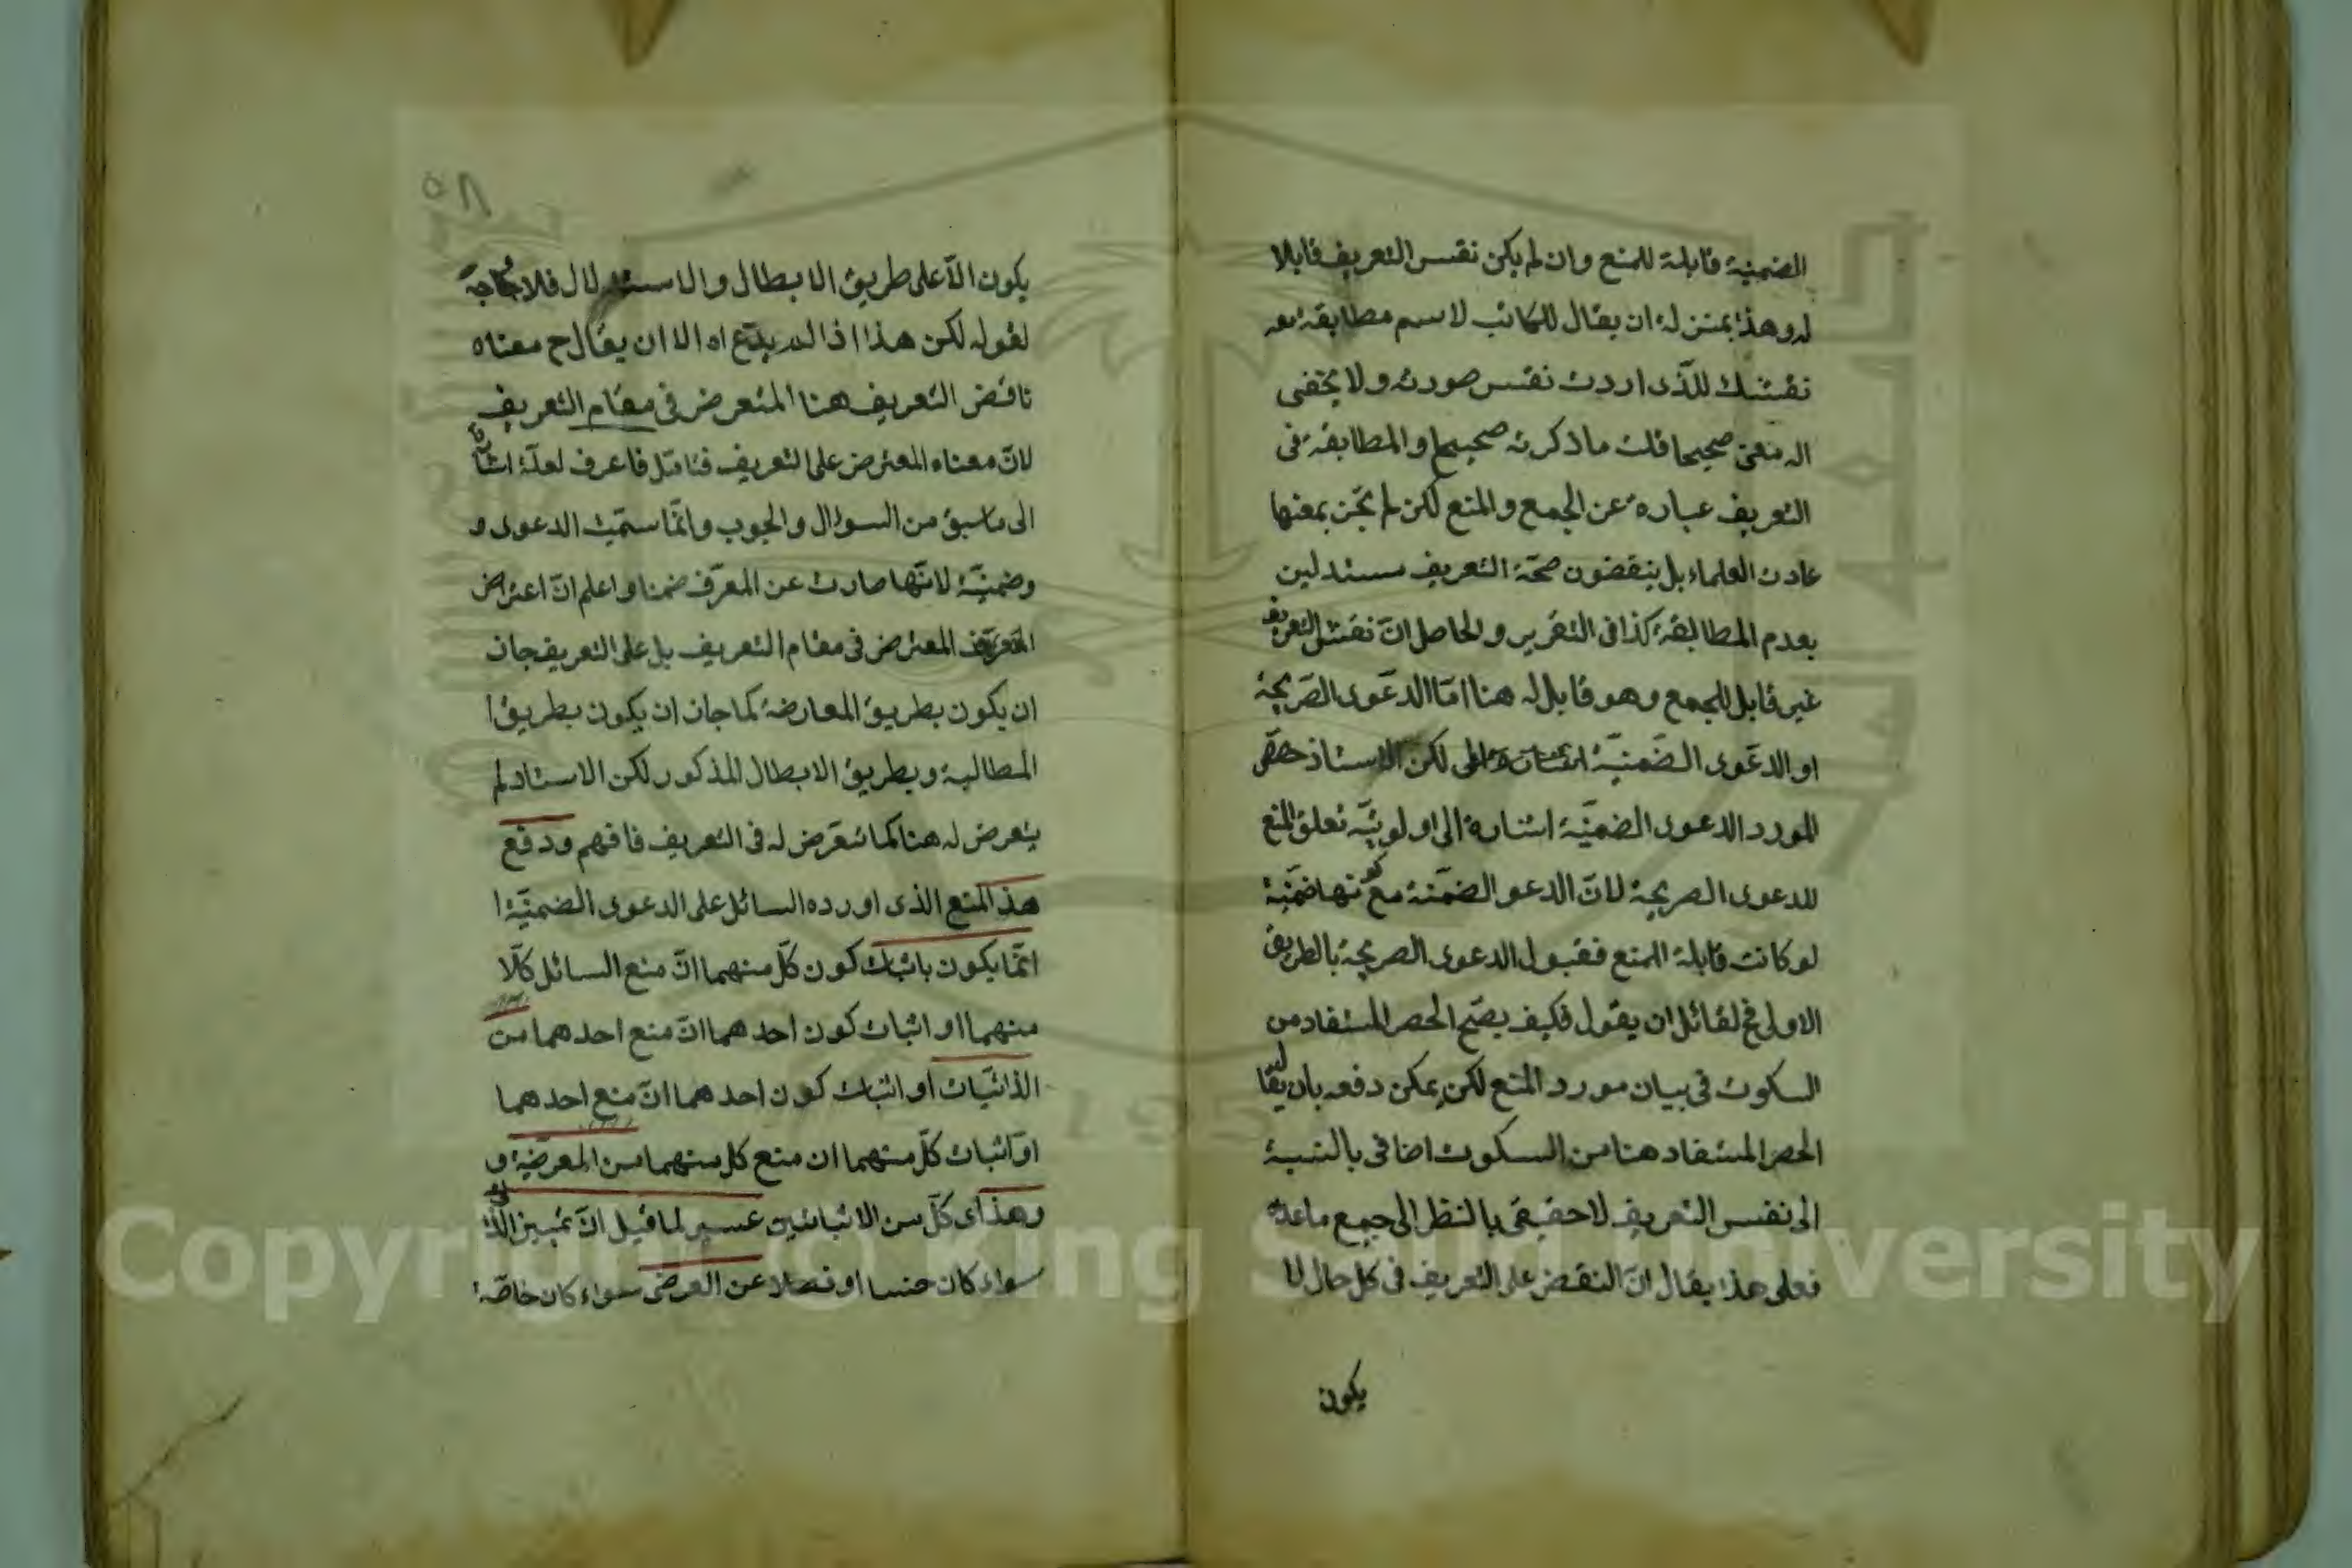 الضمنية قابلة للمنع وان لم يكن نفس التعريف قابلا
له وهذا بمنزلة ان يقال للكاتب لا سم مطابقة معه
نقشك للذى اردت نقس صورته ولا يخفى
انه معنى صحيحا قلت ما ذكرته صحيح والمطابقة فى
التعريف عبارة عن الجمع والمنع لكن لم يجن بمعنها
عادت العلماء بل ينقضون صحة التعريف مستدلين
بعدم المطالبقة كذا فى التقرير والحاصل ان نقش التعريف
غير قابل للجمع وهو قابل له هنا اما الدعوى الصريحة
او الدعوى الضمنية لكن الاستاذ خص
المورد الدعوى الضمنية اشارة الى اولوية تعلق المنع
للدعوى الصريحة لان الدعو الضمنة مع كونها ضمنية
لو كانت قابلة للمنع فقبول الدعوى الصريحة بالطريق
الاولى فح لقائل ان يقول فكيف يصح الحصر المستفاد من
السكوت فى بيان مورد المنع لكن يمكن دفعه بان يقال
الحصر المستفاد هنا من السكوت اضافى بالنسبة
الى نفس التعريف لا حقيقى بالنظر الى جميع ما عداه
فعلى هذا يقال ان النقض على التعريف فى كل حال لا
يكون
٥٨
يكون الا على طريق الابطال والاستدلال فلا حاجة
لقوله لكن هذا اذا لم يدع اه الا ان يقال ح معناه
ناقض التعريف هنا المتعرض فى مقام التعريف
لان معناه المعترض على التعريف فتامل فاعرف لعله اشارة
الى ما سبق من السوال والجوب وانما سميت الدعوى و
وضمنية لانها صارت عن المعرف ضمنا واعلم ان اعتراض
المعترض فى مقام التعريف بل على التعريف جان
ان يكون بطريق المعارضة كما جان ان يكون بطريق ا
المطالبة وبطريق الابطال المذكور لكن الاستاد لم
يتعرض له هنا كما تعرض له فى التعريف فافهم ودفع
هذا المنع الذى اورده السائل على الدعوى الضمنية ا
انما يكون باثبات كون كل منهما ان منع السائل كلا
منهما او اثبات كون احدهما ان منع احدهما من
الذاتيات او اثبات كون احدهما ان منع احدهما
او اثبات كل منهما ان منع كل منهما من المعرضية و
وهذا اى كل من الاثباتين عسير لما قيل ان تمييز الذاتى
سواء كان جنسا او فصلا عن العرضى سواء كان خاصة